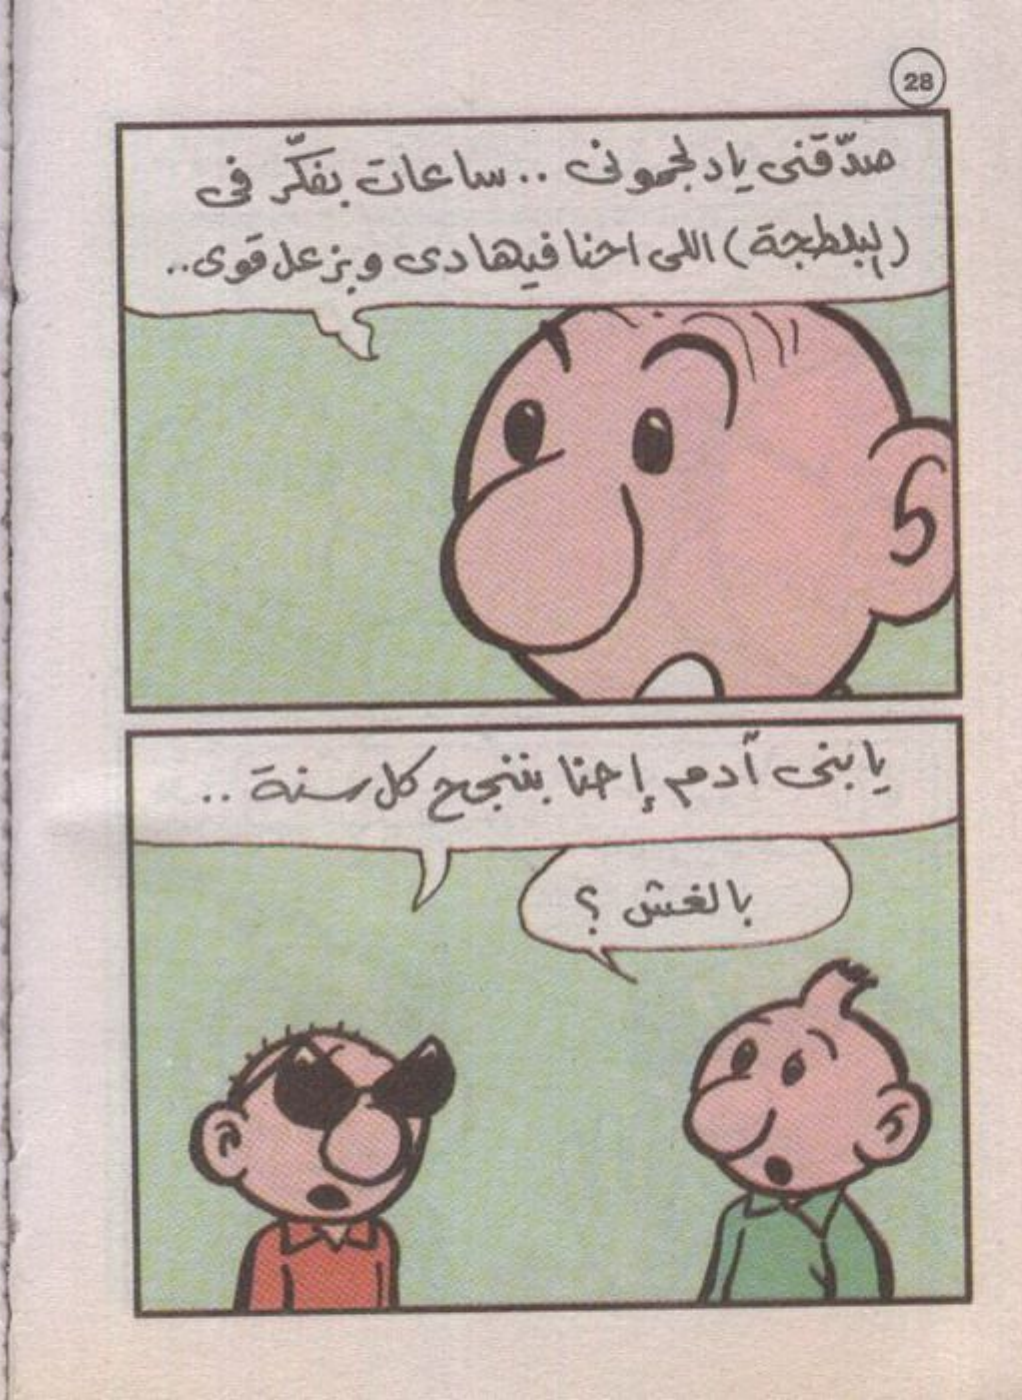 28
صدّقنى ياد لجمونى .. ساعات بفكّر فى
(البلطجة) اللى احنا فيها دى وبزعل قوى..
يا بنى آدم إحنا بننجح كل سنة ..
بالغش ؟